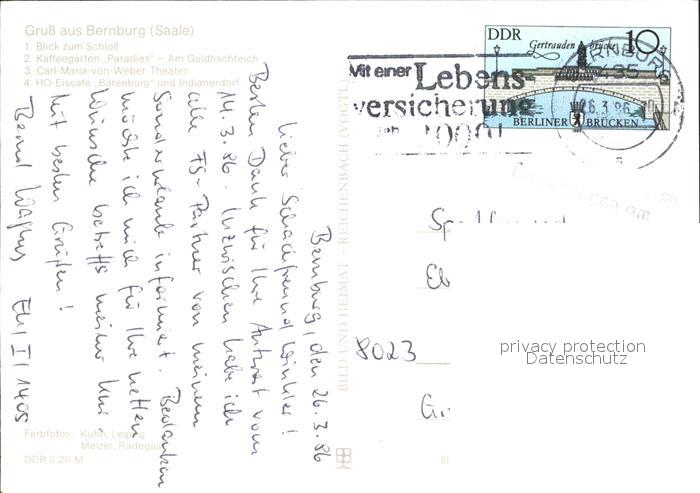 Gruß aus Bernburg (Saale)
1. Blick zum Schloß
2. Kaffeegarten „Paradies" – Am Goldfischteich
3. Carl-Maria-von-Weber-Theater
4. HO-Eiscafé „Bärenburg" und Indianerdorf
Bernburg, den 26.3.86
Lieber Schachfreund Winkler!
Besten Dank für Ihre Antwort vom
14.3.86. Inzwischen habe ich
alle FS-Partner von meinem
Sonderurlaub informiert. Bedanken
möchte ich mich für Ihre netten
Wünsche betreffs meiner Kur.
Mit besten Grüßen!
Bernd Wagner EH/II/1405
Farbfotos: Kuhn, Leipzig
Melzer, Radegast
DDR 0,20 M
BILD UND HEIMAT · REICHENBACH (VOGTL)
III
Mit einer Lebens-
versicherung
DDR 10
Gertraudenbrücke
BERLINER BRÜCKEN
BERNBURG
435
26.3.86
Eingegangen am
Sp
Eb
8023
G
privacy protection
Datenschutz